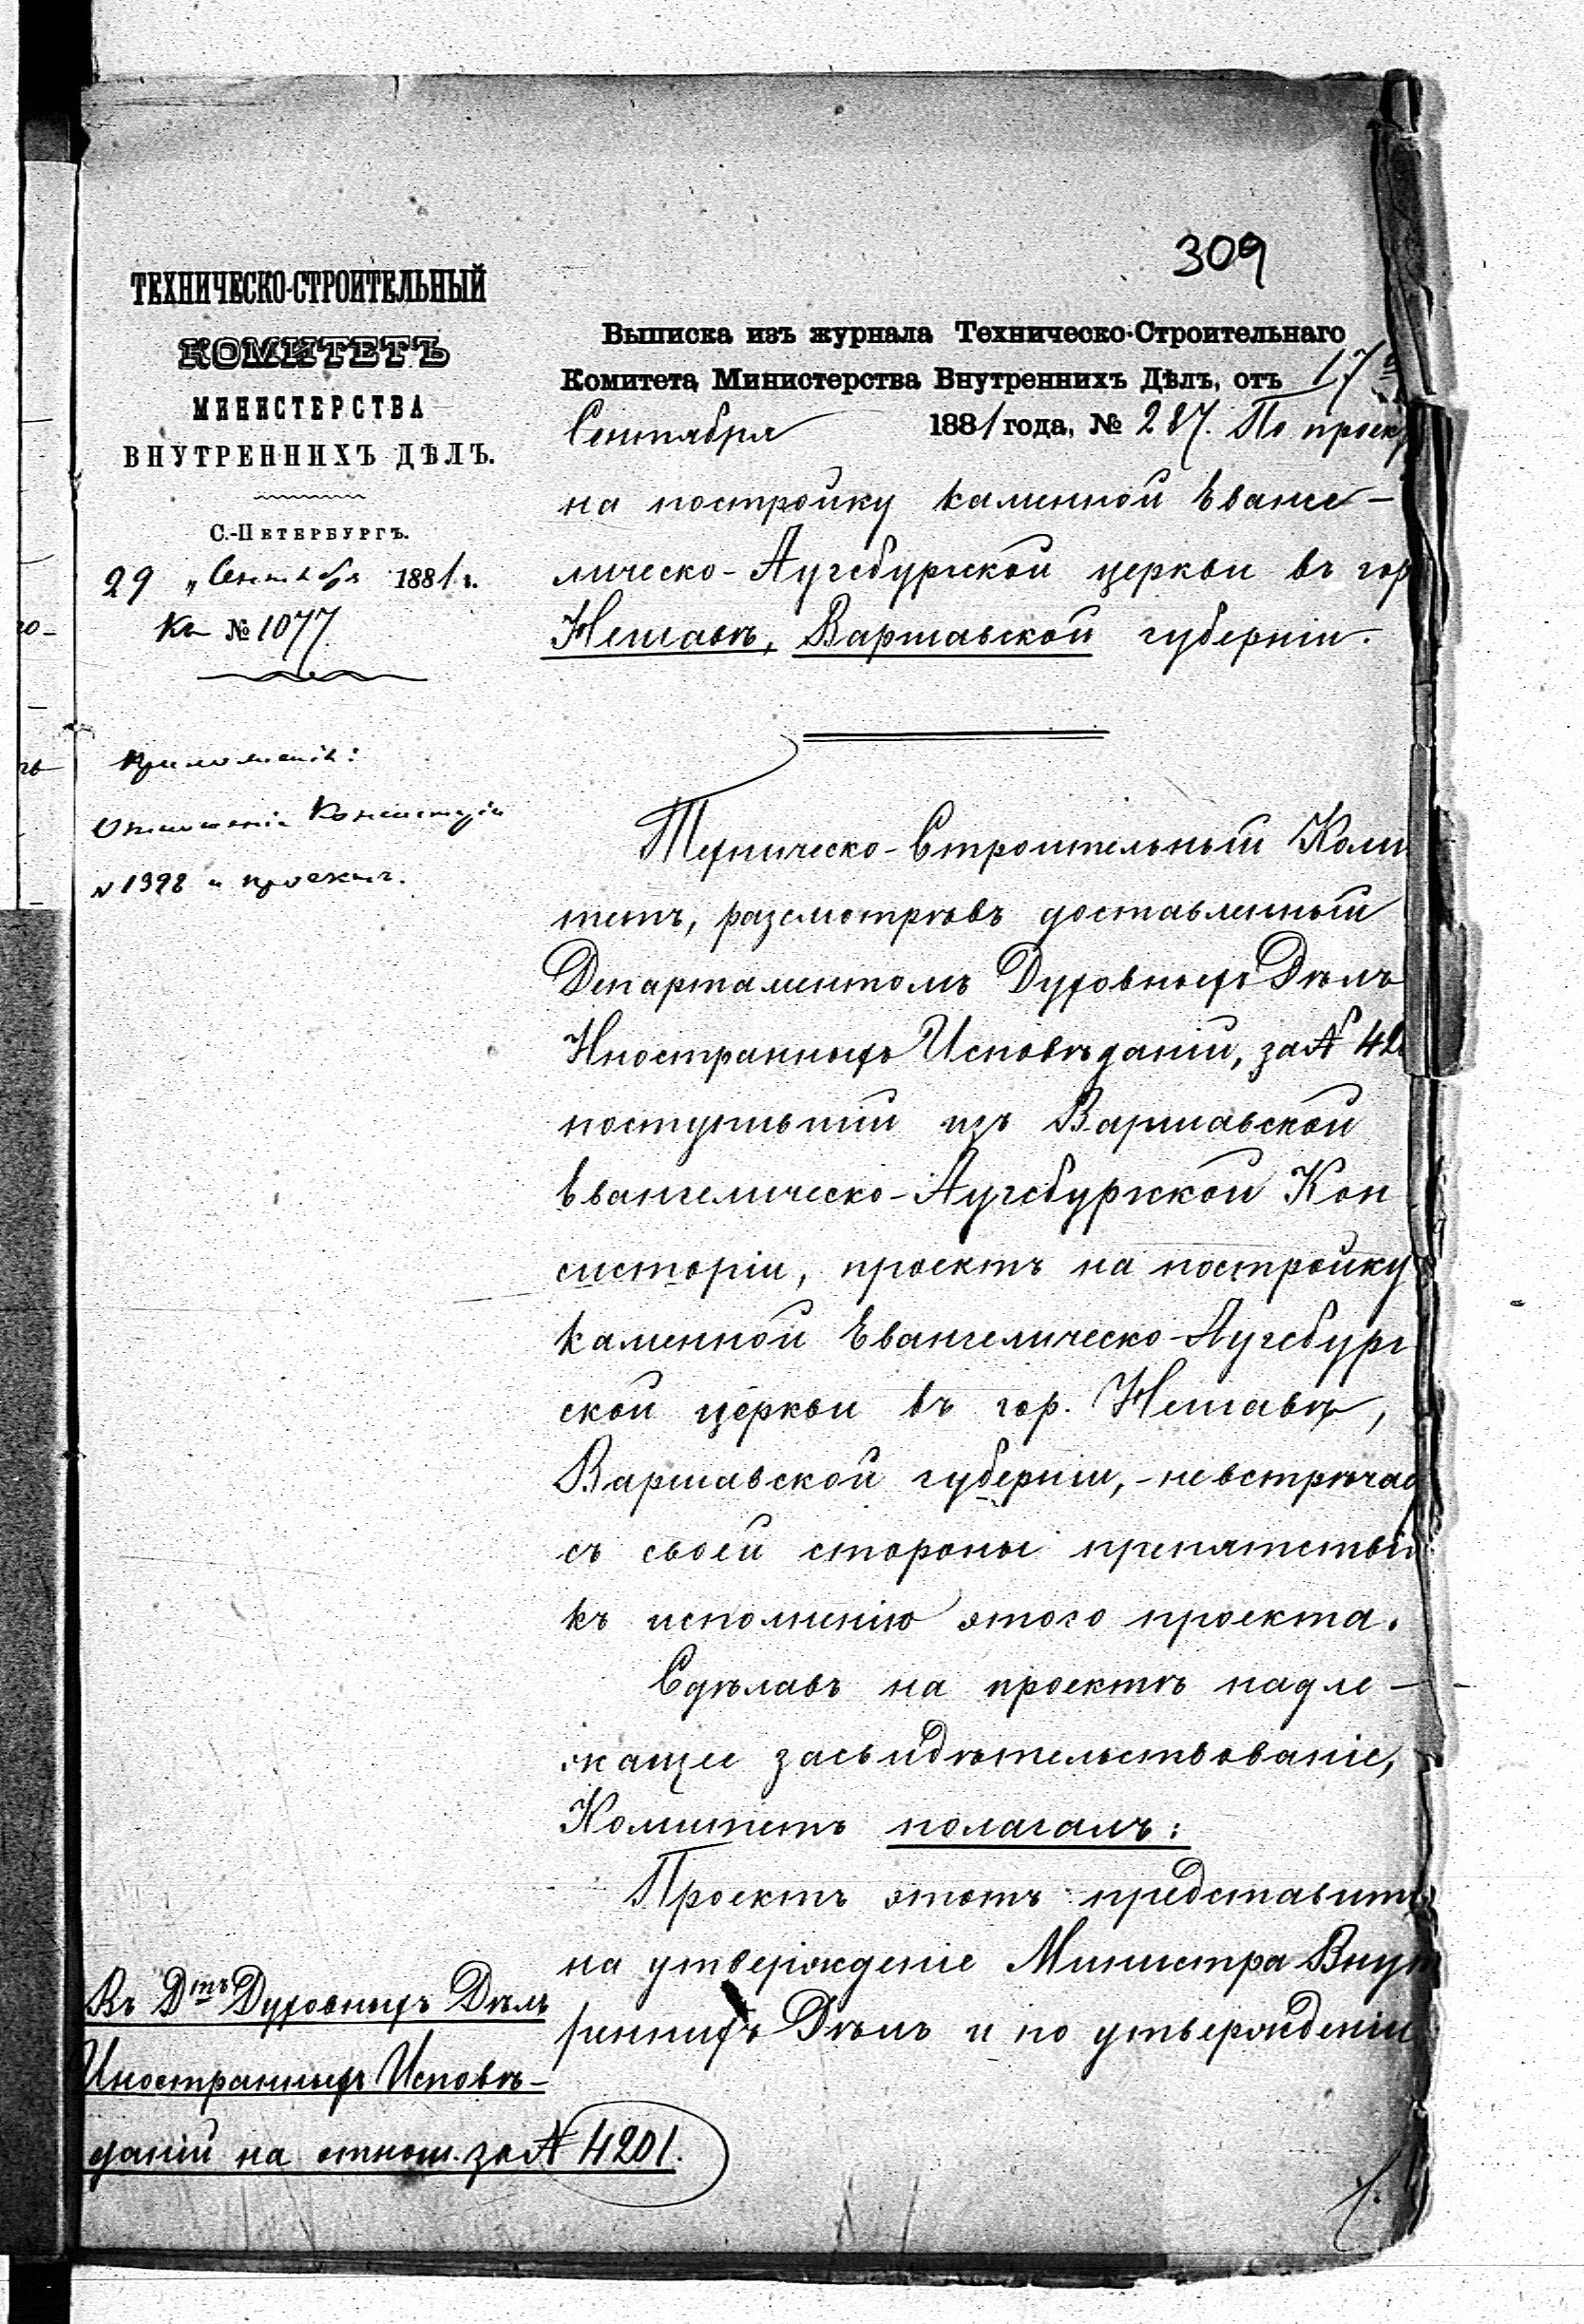 309
ТЕХНИЧЕСКО-СТРОИТЕЛЬНЫЙ
КОМИТЕТЪ
МИНИСТЕРСТВА
ВНУТРЕННИХЪ ДѢЛЪ.
С.-ПЕТЕРБУРГЪ.
29 „ Сентября 1881 г.
№ 1077
Приложенія:
Отношеніе Консисторіи
№ 1398 и проектъ.
Въ Дтъ Духовныхъ Дѣлъ
Иностранныхъ Исповѣ-
даній на отнош. за № 4201.
Выписка изъ журнала Техническо-Строительнаго
Комитета Министерства Внутреннихъ Дѣлъ, отъ 17го
Сентября 1881 года, № 287. По проек
на постройку каменной Еванге-
лическо-Аугсбургской церкви въ гор
Нешавѣ, Варшавской губерніи.
Техническо-Строительный Коми
тетъ, разсмотрѣвъ доставленный
Департаментомъ Духовныхъ Дѣлъ
Иностранныхъ Исповѣданій, за № 420
поступившій изъ Варшавской
Евангелическо-Аугсбургской Кон
систоріи, проектъ на постройку
каменной Евангелическо-Аугсбург
ской церкви въ гор. Нешавѣ,
Варшавской губерніи, - невстрѣчае
съ своей стороны препятствій
къ исполненію этого проекта.
Сдѣлавъ на проектѣ надле-
жащее засвидѣтельствованіе,
Комитетъ полагалъ:
Проектъ этотъ представить
на утвержденіе Министра Внут
реннихъ Дѣлъ и по утвержденіи